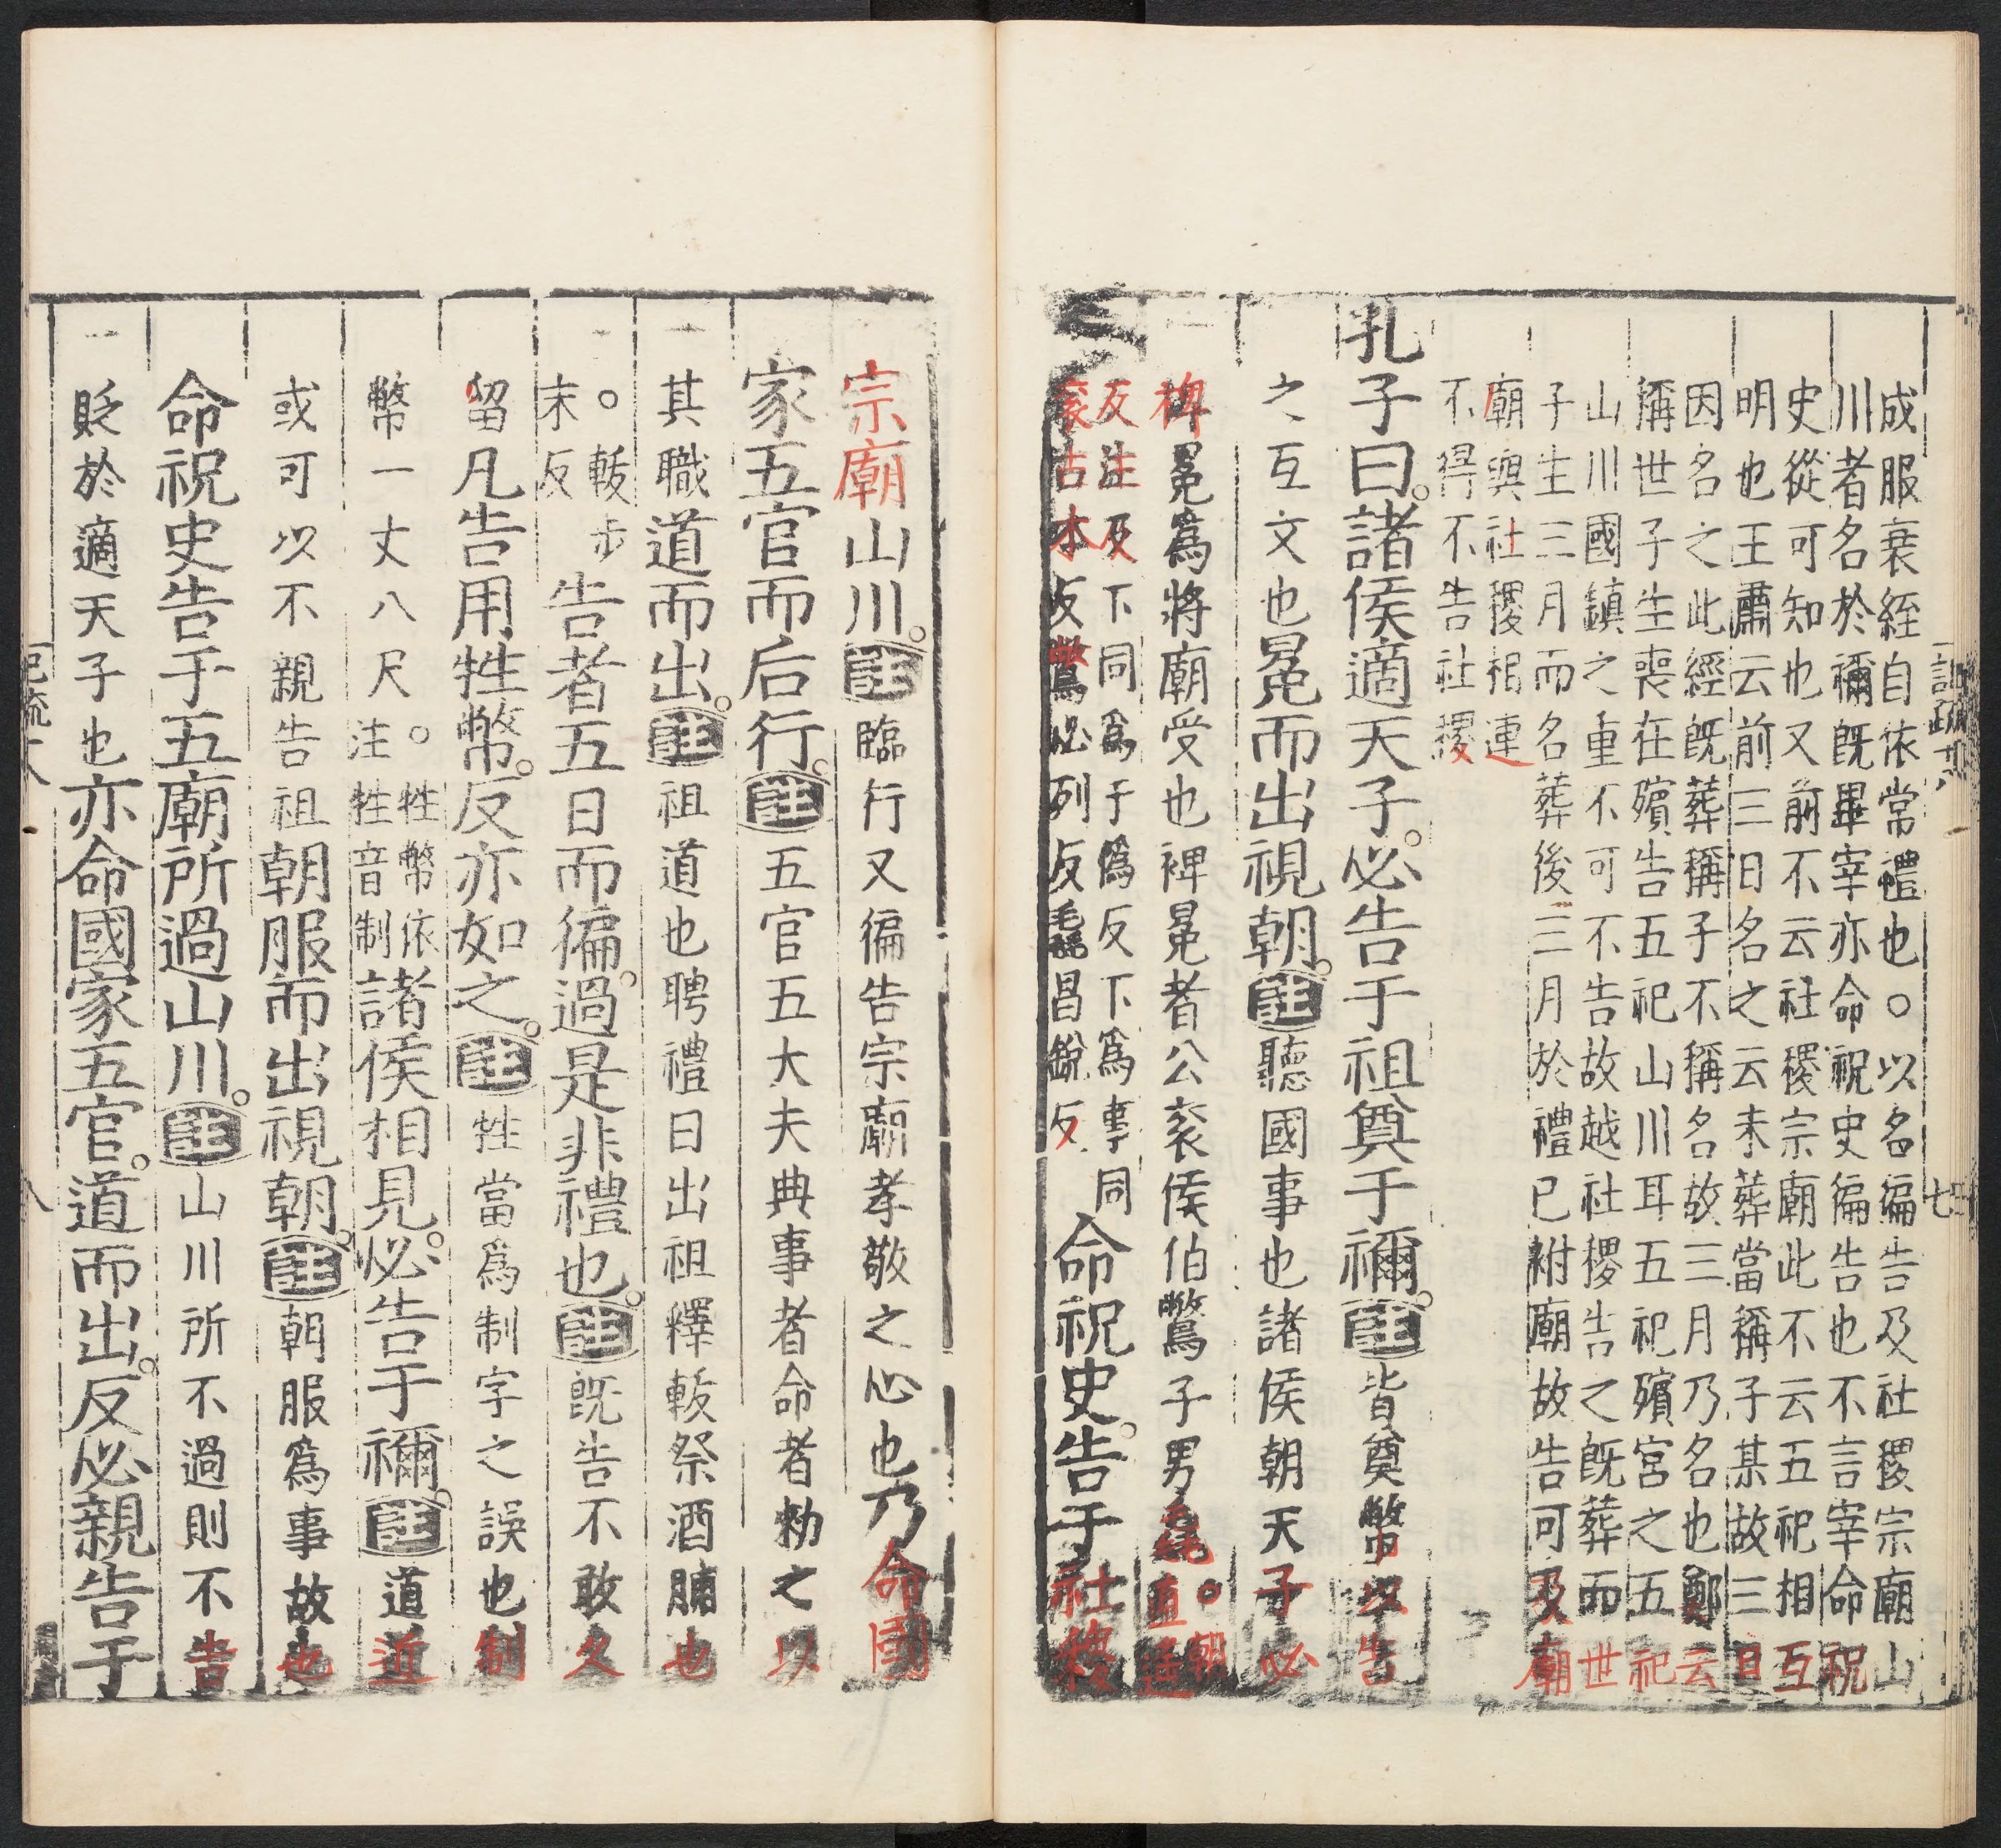 成服衰絰自依常禮也○以名徧告及社稷宗廟山
川者名於禰既畢宰亦命祝史徧告也不言宰命祝
史從可知也又前不云社稷宗廟此不云五祀相互
明也王肅云前三日名之云未葬當稱子某故三日
因名之此經既葬稱子不稱名故三月乃名也鄭云
稱世子生喪在殯告五祀山川耳五祀殯宮之五祀
山川國鎮之重不可不告故越社稷告之既葬而世
子生三月而名葬後三月於禮已祔廟故告可及廟
廟與社稷相連
不得不告社稷
孔子曰諸侯適天子必告于祖奠于禰註皆奠幣以告
之互文也冕而出視朝註聽國事也諸侯朝天子必
裨冕爲將廟受也裨冕者公衮侯伯鷩子男毳○朝
直遙
反注及下同爲于僞反下爲事同
衮古本反鷩必列反毳昌銳反
命祝史告于社稷
宗廟山川註臨行又徧告宗廟孝敬之心也乃命國
家五官而后行註五官五大夫典事者命者勑之以
其職道而出註祖道也聘禮曰出祖釋軷祭酒脯也
○軷步
末反
告者五日而徧過是非禮也註既告不敢久
留凡告用牲幣反亦如之註牲當爲制字之誤也制
幣一丈八尺○牲幣依
注牲音制
諸侯相見必告于禰註道近
或可以不親告祖朝服而出視朝註朝服爲事故也
命祝史告于五廟所過山川註山川所不過則不告
貶於適天子也亦命國家五官道而出反必親告于